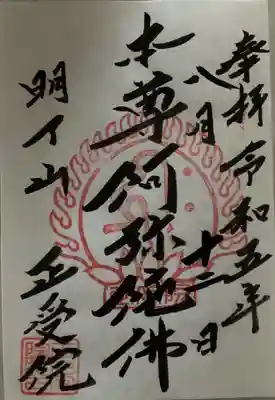 奉拝 令和五年
八月十二日
本尊阿弥陀佛
明了山 正受院